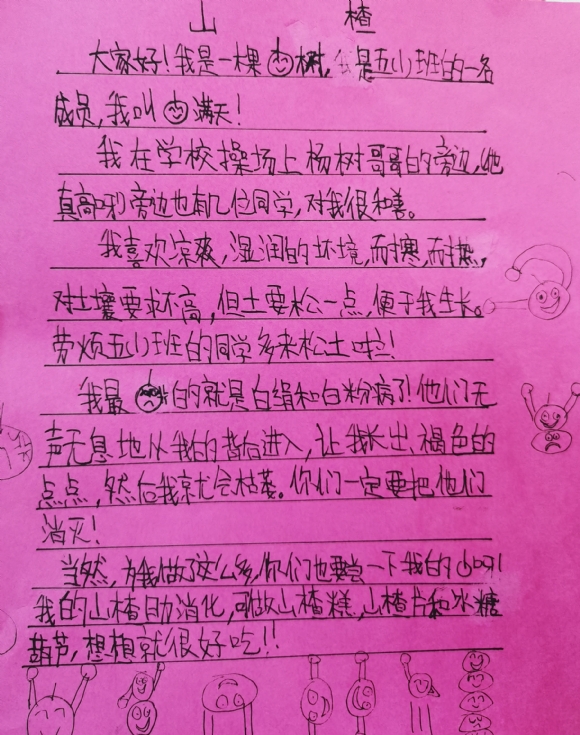 山 楂
大家好！我是一棵树，我是五(1)班的一名
成员，我叫满天！
我在学校操场上杨树哥哥的旁边，他
真高呀！旁边也有几位同学，对我很和善。
我喜欢凉爽，湿润的环境，耐寒，耐热，
对土壤要求不高，但土要松一点，便于我生长。
劳烦五(1)班的同学多来松土啦！
我最的就是白绢和白粉病了！他们无
声无息地从我的背后进入，让我长出、褐色的
点点，然后我就会枯萎。你们一定要把他们
消灭！
当然，为我做了这么多，你们也要尝一下我的小吖！
我的山楂助消化，可做山楂糕，山楂片和冰糖
葫芦，想想就很好吃！！